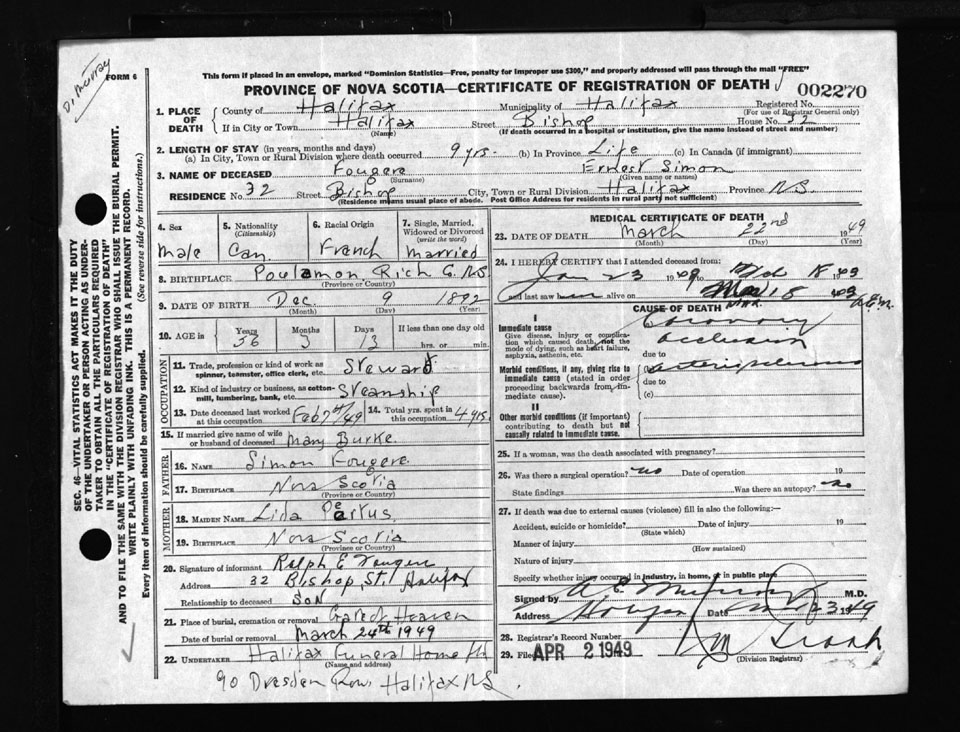 D. Murray
FORM 6
This form if placed in an envelope, marked "Dominion Statistics—Free, penalty for improper use $300," and properly addressed will pass through the mail "FREE"
PROVINCE OF NOVA SCOTIA—CERTIFICATE OF REGISTRATION OF DEATH
002270
1. PLACE OF DEATH
County of Halifax Municipality of Halifax Registered No.
(For use of Registrar General only)
If in City or Town Halifax Street Bishop House No. 32
(Name) (If death occurred in a hospital or institution, give the name instead of street and number)
2. LENGTH OF STAY (in years, months and days)
(a) In City, Town or Rural Division where death occurred 9 yrs. (b) In Province Life (c) In Canada (if immigrant)
3. NAME OF DECEASED Fougere Ernest Simon
(Surname) (Given name or names)
RESIDENCE No. 32 Street Bishop City, Town or Rural Division Halifax Province N.S.
(Residence means usual place of abode. Post Office Address for residents in rural parts not sufficient)
4. Sex
Male
5. Nationality
(Citizenship)
Can.
6. Racial Origin
French
7. Single, Married, Widowed or Divorced
(write the word)
Married
8. BIRTHPLACE Poulamon, Rich Co. NS
(Province or Country)
9. DATE OF BIRTH Dec. 9 1892
(Month) (Day) (Year)
10. AGE in
Years Months Days If less than one day old
56 3 13 hrs. or min.
OCCUPATION
11. Trade, profession or kind of work as spinner, teamster, office clerk, etc. Steward
12. Kind of industry or business, as cotton-mill, lumbering, bank, etc. Steamship
13. Date deceased last worked at this occupation Feb 7th/49
14. Total yrs. spent in this occupation 4 yrs.
15. If married give name of wife or husband of deceased Mary Burke.
FATHER
16. NAME Simon Fougere
17. BIRTHPLACE Nova Scotia
(Province or Country)
MOTHER
18. MAIDEN NAME Lida
19. BIRTHPLACE Nova Scotia
(Province or Country)
20. Signature of informant Ralph E Fougere
Address 32 Bishop St. Halifax
Relationship to deceased Son
21. Place of burial, cremation or removal Gate of Heaven
Date of burial or removal March 24th 1949
22. UNDERTAKER Halifax Funeral Home
(Name and address)
90 Dresden Row, Halifax NS.
MEDICAL CERTIFICATE OF DEATH
23. DATE OF DEATH March 22nd 1949
(Month) (Day) (Year)
24. I HEREBY CERTIFY that I attended deceased from:
Jan 23 1949 to 18 1949
and last saw him alive on 18 1949
CAUSE OF DEATH
I
Immediate cause
Give disease, injury or complication which caused death, not the mode of dying, such as heart failure, asphyxia, asthenia, etc.
Coronary
occlusion
due to
Morbid conditions, if any, giving rise to immediate cause (stated in order proceeding backwards from immediate cause).
arteriosclerosis
due to
(c)
II
Other morbid conditions (if important) contributing to death but not causally related to immediate cause.
25. If a woman, was the death associated with pregnancy?
26. Was there a surgical operation? no Date of operation 19
State findings Was there an autopsy? no
27. If death was due to external causes (violence) fill in also the following:—
Accident, suicide or homicide? Date of injury 19
(State which)
Manner of injury
(How sustained)
Nature of injury
Specify whether injury occurred in industry, in home, or in public place
Signed by A. E. Murray M.D.
Address Halifax Date 23 1949
28. Registrar's Record Number
29. Filed APR 2 1949
(Division Registrar)
SEC. 46—VITAL STATISTICS ACT MAKES IT THE DUTY
OF THE UNDERTAKER OR PERSON ACTING AS UNDER-
TAKER TO OBTAIN ALL THE PARTICULARS REQUIRED
IN THE "CERTIFICATE OF REGISTRATION OF DEATH"
AND TO FILE THE SAME WITH THE DIVISION REGISTRAR WHO SHALL ISSUE THE BURIAL PERMIT.
WRITE PLAINLY WITH UNFADING INK. THIS IS A PERMANENT RECORD.
Every item of information should be carefully supplied. (See reverse side for instructions.)